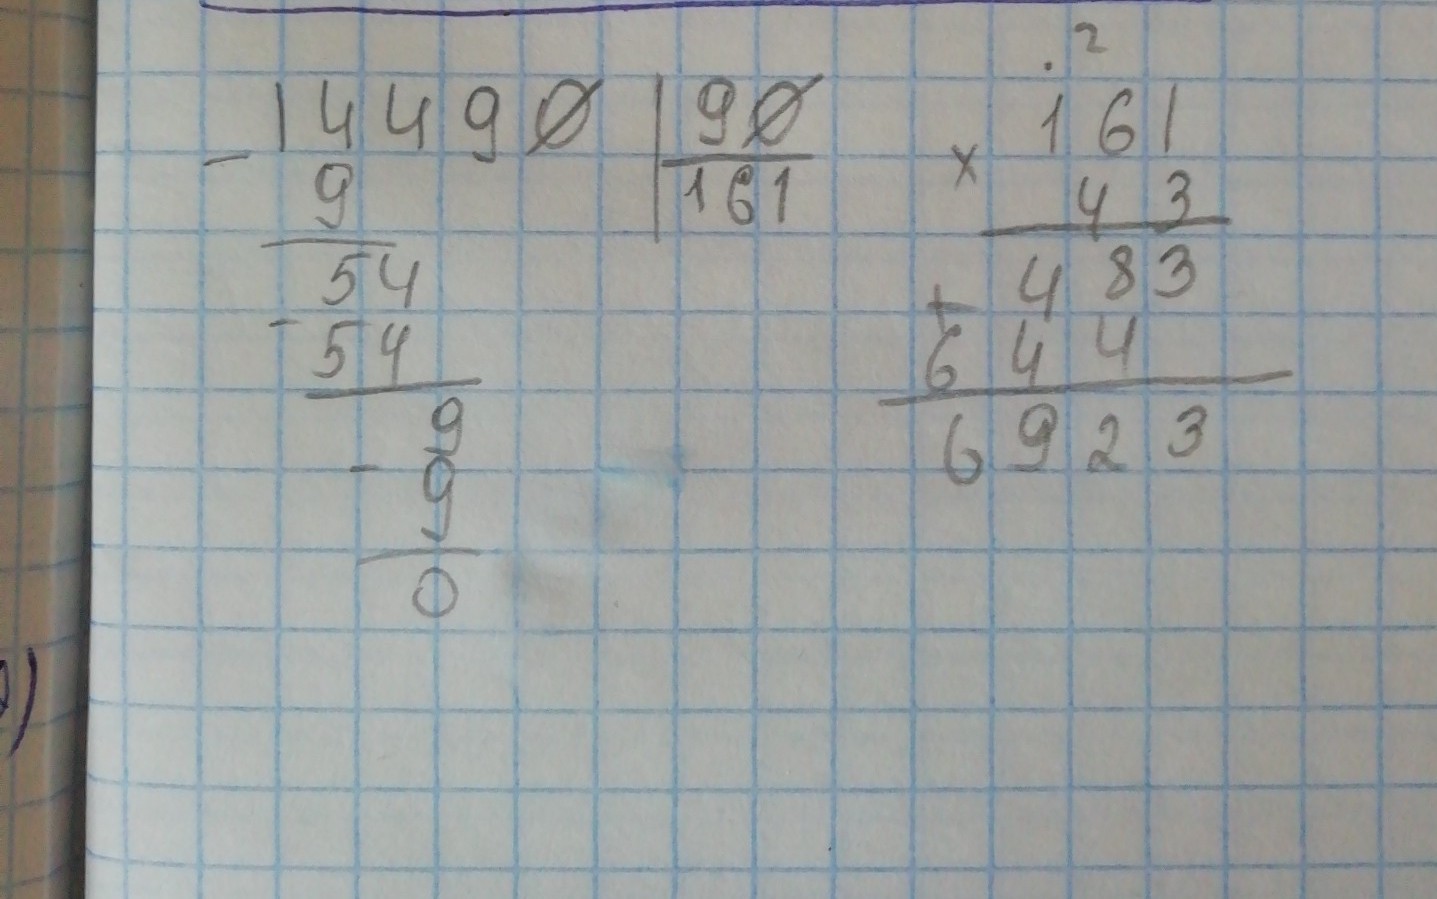 2
- 14490 | 90
9
161
54
- 54
9
- 9
0
161
x 43
483
+ 644
6923
)